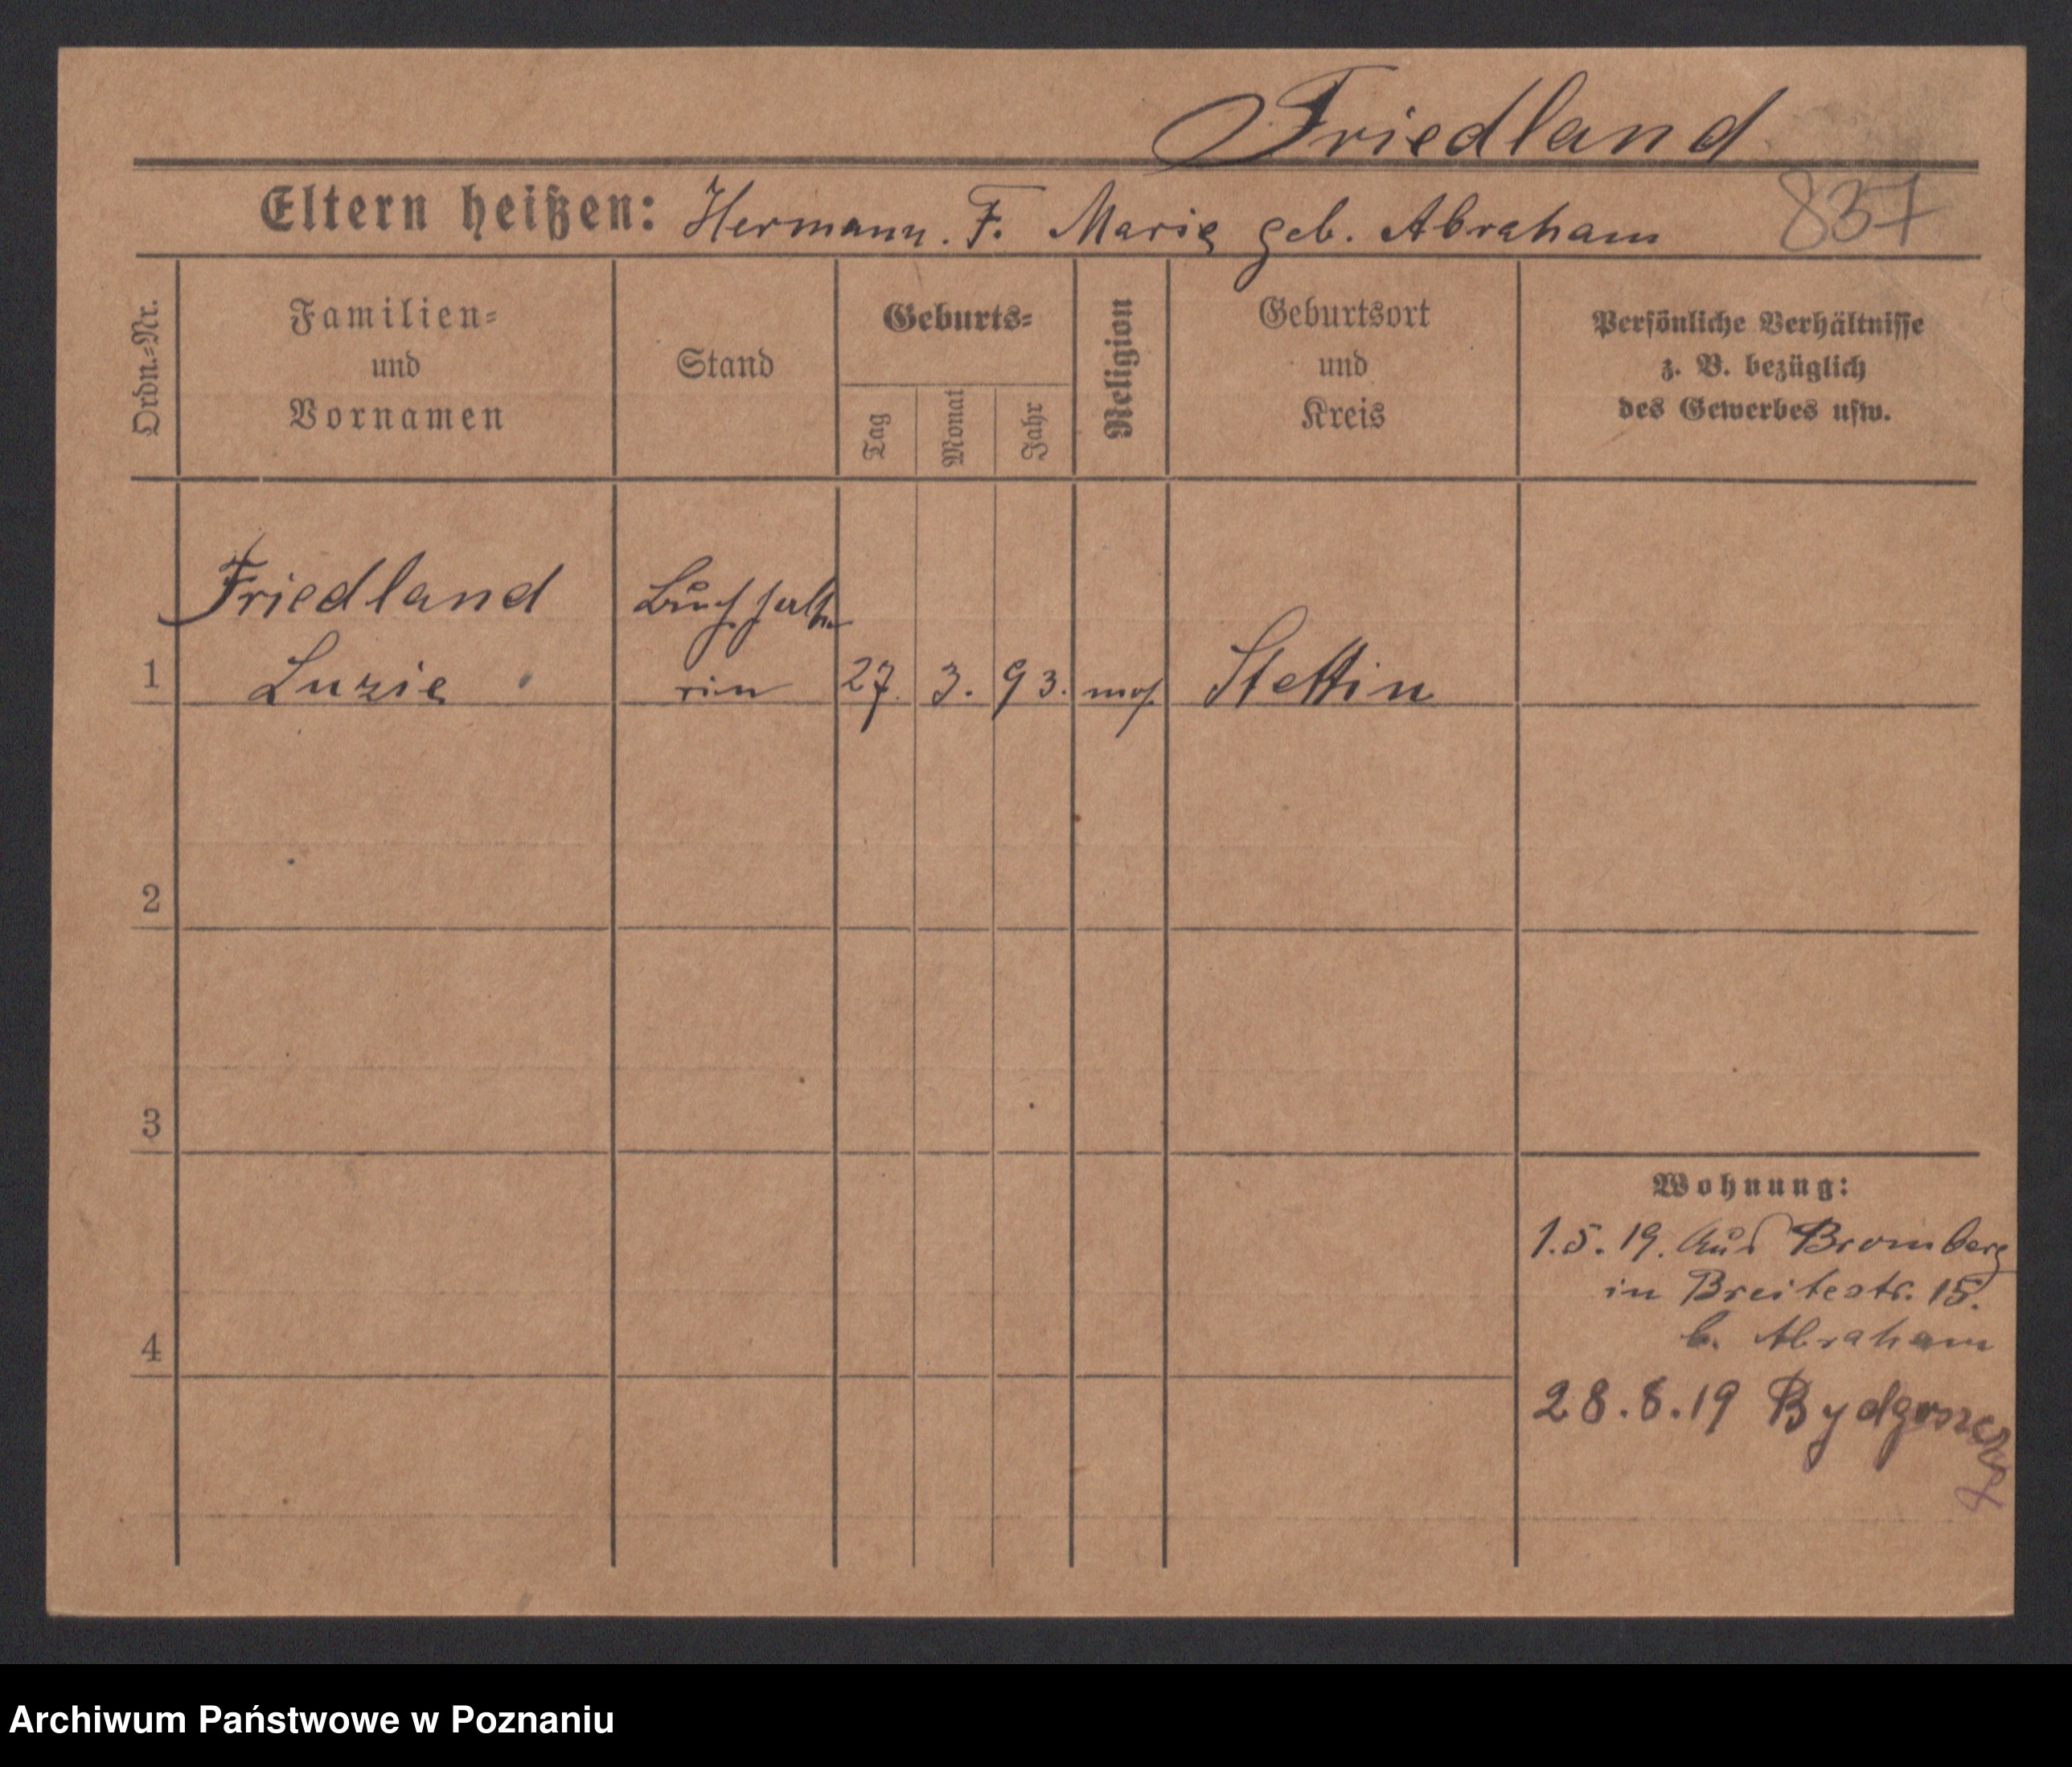 Friedland
Eltern heißen: Hermann. F. Marie geb. Abraham 837
Ordn.-Nr.
Familien-
und
Vornamen
Stand
Geburts-
Tag
Monat
Jahr
Religion
Geburtsort
und
Kreis
Persönliche Verhältnisse
z. B. bezüglich
des Gewerbes usw.
Friedland Buchhalte
1 Luzie rin 27. 3. 93. mos. Stettin
2
3
Wohnung:
1.5.19. Aus Bromberg
in Breitestr. 15.
b. Abraham
4
28.8.19 Bydgoszcz
Archiwum Państwowe w Poznaniu